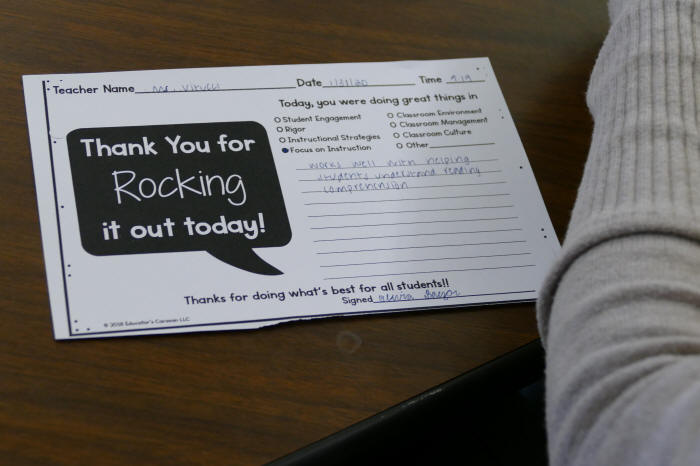 Teacher Name Mr. Vitucci Date 1/31/20 Time 9:19
Today, you were doing great things in
Student Engagement
Rigor
Instructional Strategies
Focus on Instruction
Classroom Environment
Classroom Management
Classroom Culture
Other
Thank You for
Rocking
it out today!
works well with helping
students understand reading
comprehension
Thanks for doing what's best for all students!!
Signed
© 2018 Educator's Caravan LLC